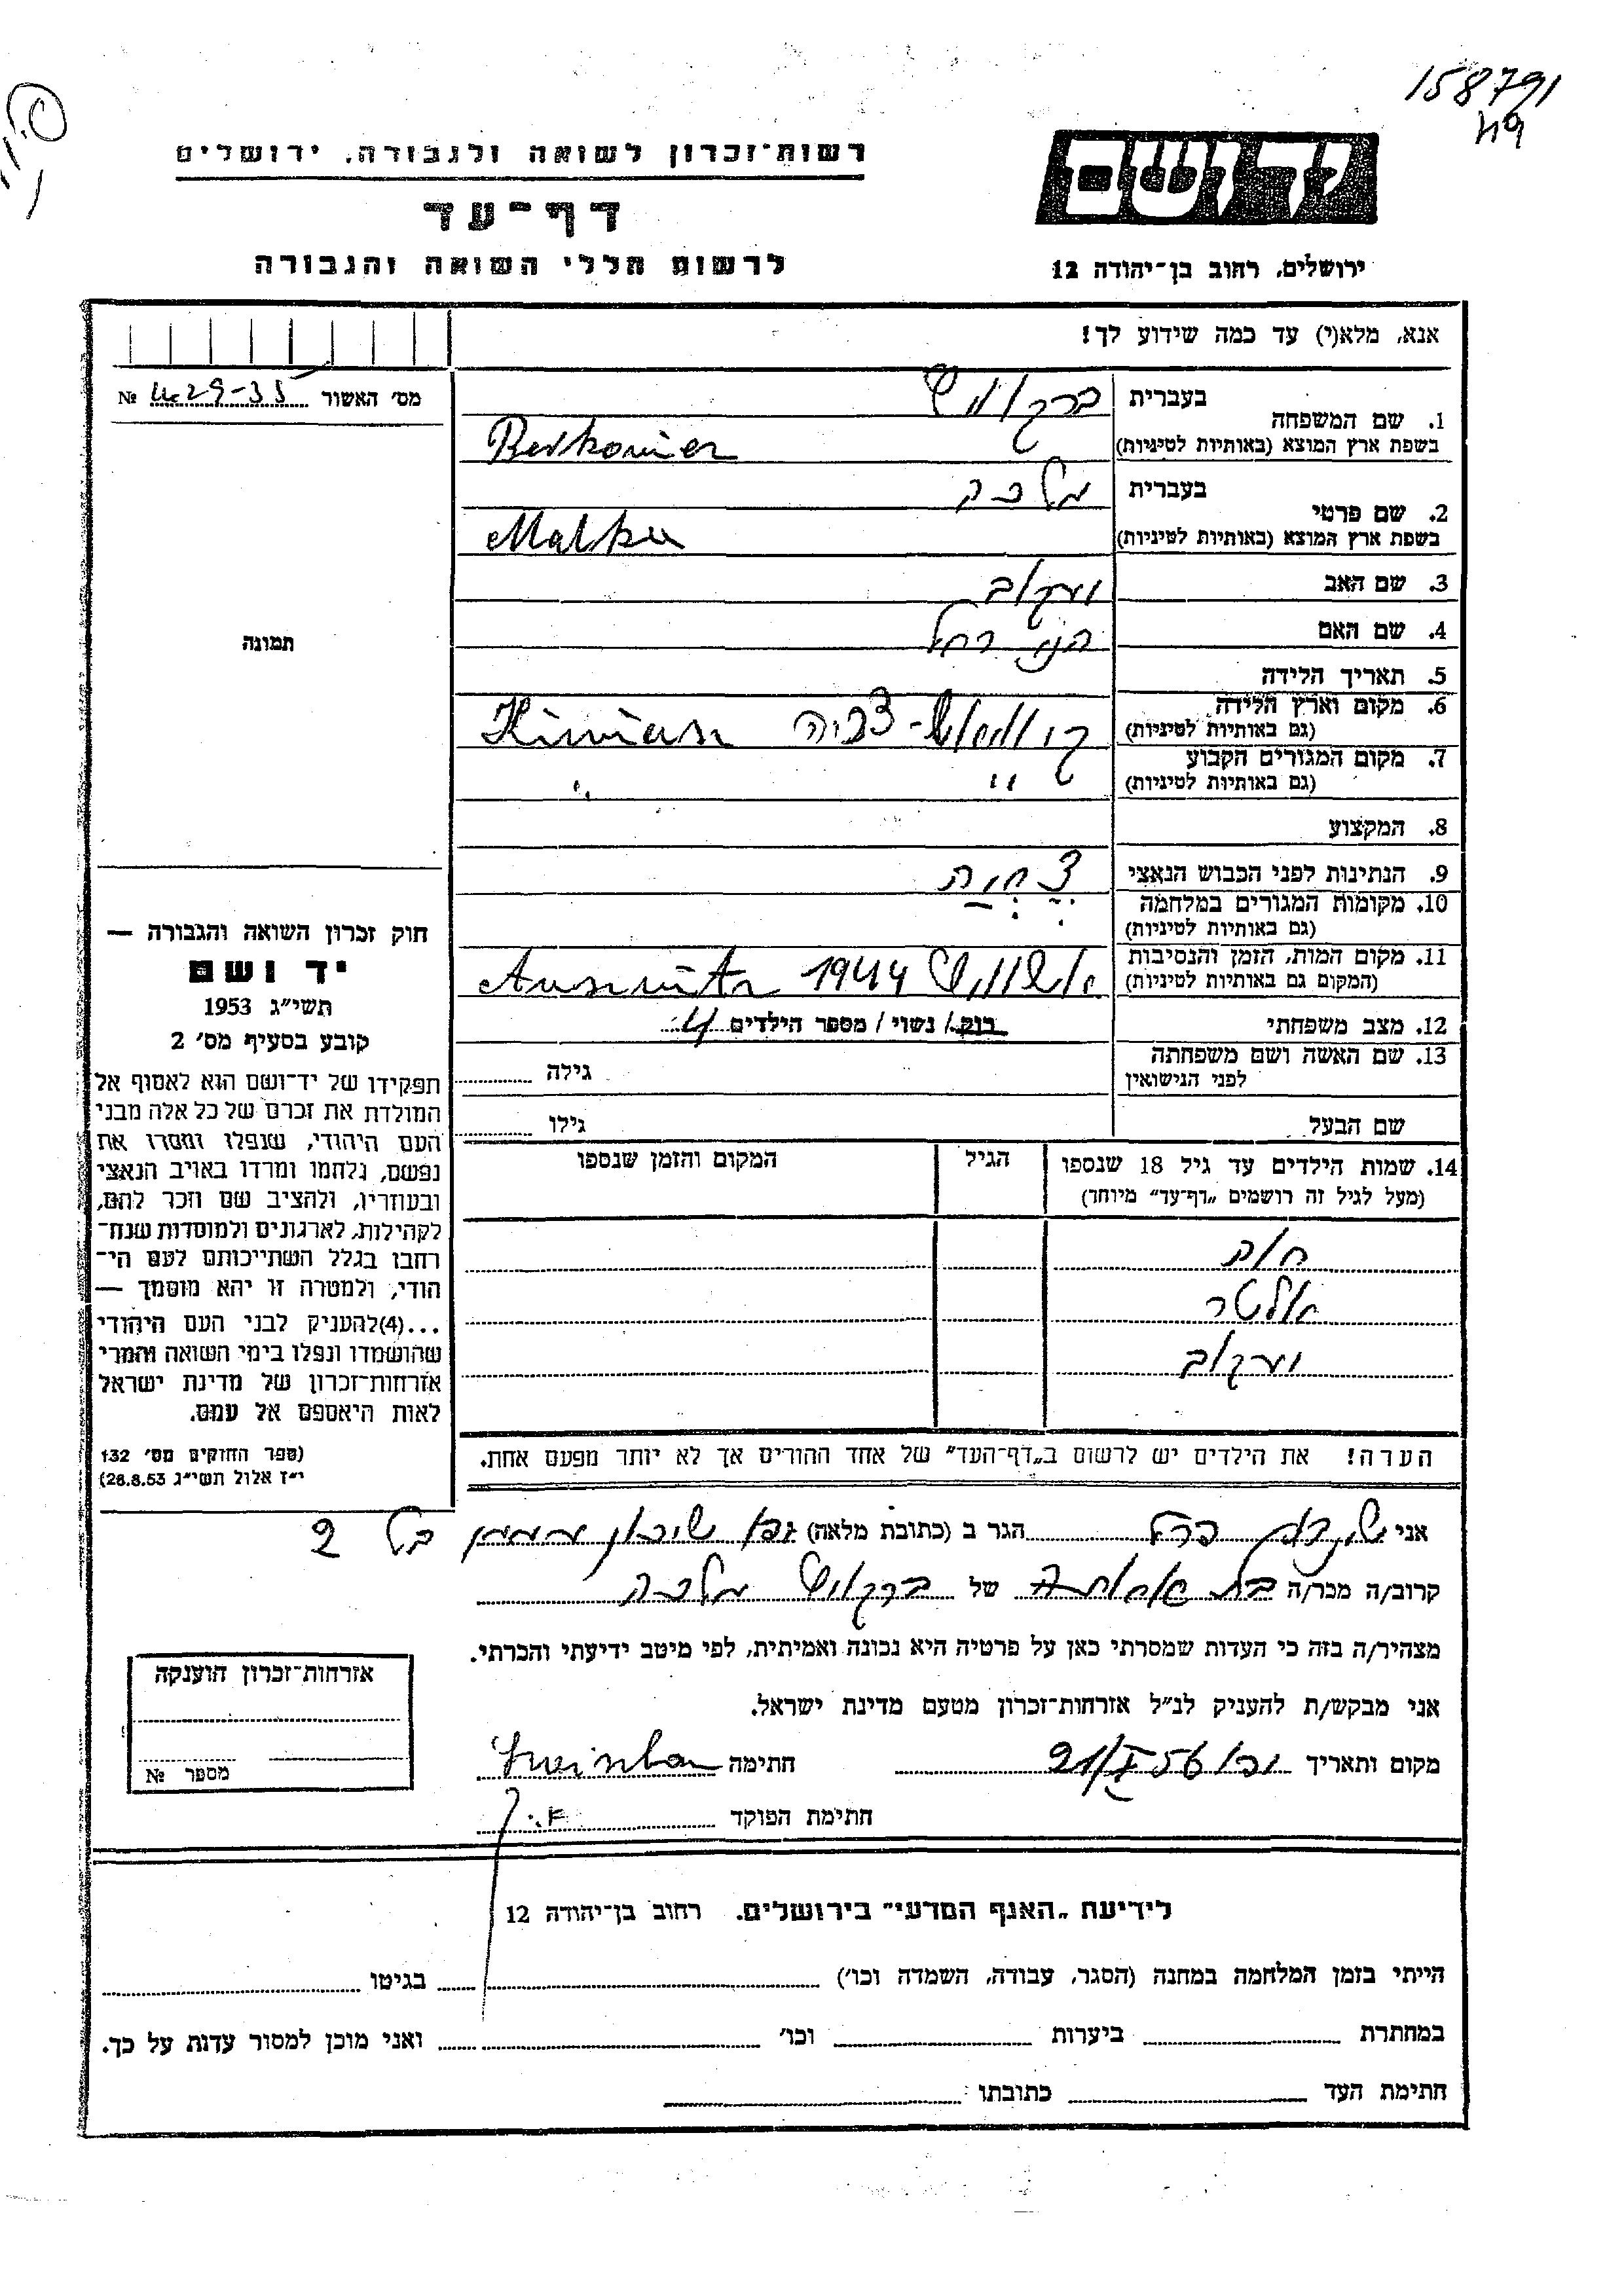 158791
רשות-זכרון לשואה ולגבורה, ירושלים
יד ושם
דף-עד
לרשום חללי השואה והגבורה
ירושלים, רחוב בן-יהודה 12
אנא, מלא(י) עד כמה שידוע לך!
מס' האשור № 429-35
1. שם המשפחה
בעברית
בשפת ארץ המוצא (באותיות לטיניות)
2. שם פרטי
בעברית מלכה
בשפת ארץ המוצא (באותיות לטיניות) Malka
3. שם האב יעקוב
4. שם האם רחל
5. תאריך הלידה
6. מקום וארץ הלידה
(גם באותיות לטיניות)
7. מקום המגורים הקבוע
(גם באותיות לטיניות) " "
8. המקצוע
9. הנתינות לפני הכבוש הנאצי
10. מקומות המגורים במלחמה
(גם באותיות לטיניות)
11. מקום המות, הזמן והנסיבות
(המקום גם באותיות לטיניות) 1944
12. מצב משפחתי רווק / נשוי / מספר הילדים 4
13. שם האשה ושם משפחתה
לפני הנישואין
גילה
שם הבעל גילו
14. שמות הילדים עד גיל 18 שנספו הגיל המקום והזמן שנספו
(מעל לגיל זה רושמים „דף-עד" מיוחד)
אלטר
יעקוב
הערה! את הילדים יש לרשום ב„דף-העד" של אחד ההורים אך לא יותר מפעם אחת.
תמונה
חוק זכרון השואה והגבורה —
יד ושם
תשי"ג 1953
קובע בסעיף מס' 2
תפקידו של יד-ושם הוא לאסוף אל
המולדת את זכרם של כל אלה מבני
העם היהודי, שנפלו ומסרו את
נפשם, נלחמו ומרדו באויב הנאצי
ובעוזריו, ולהציב שם וזכר להם,
לקהילות, לארגונים ולמוסדות שנח-
רבו בגלל השתייכותם לעם הי-
הודי, ולמטרה זו יהא מוסמך —
...(4)להעניק לבני העם היהודי
שהושמדו ונפלו בימי השואה והמרי
אזרחות-זכרון של מדינת ישראל
לאות היאספם אל עמם.
(ספר החוקים מס' 132
י"ז אלול תשי"ג 28.8.53)
אני הגר ב (כתובת מלאה) 2
קרוב/ה מכר/ה בת של מלכה
מצהיר/ה בזה כי העדות שמסרתי כאן על פרטיה היא נכונה ואמיתית, לפי מיטב ידיעתי והכרתי.
אני מבקש/ת להעניק לנ"ל אזרחות-זכרון מטעם מדינת ישראל.
מקום ותאריך יפו 56 חתימה
חתימת הפוקד
אזרחות-זכרון הוענקה
מספר №
לידיעת „האגף המדעי" בירושלים. רחוב בן-יהודה 12
הייתי בזמן המלחמה במחנה (הסגר, עבודה, השמדה וכו') בגיטו
במחתרת ביערות וכו' ואני מוכן למסור עדות על כך.
חתימת העד כתובתו